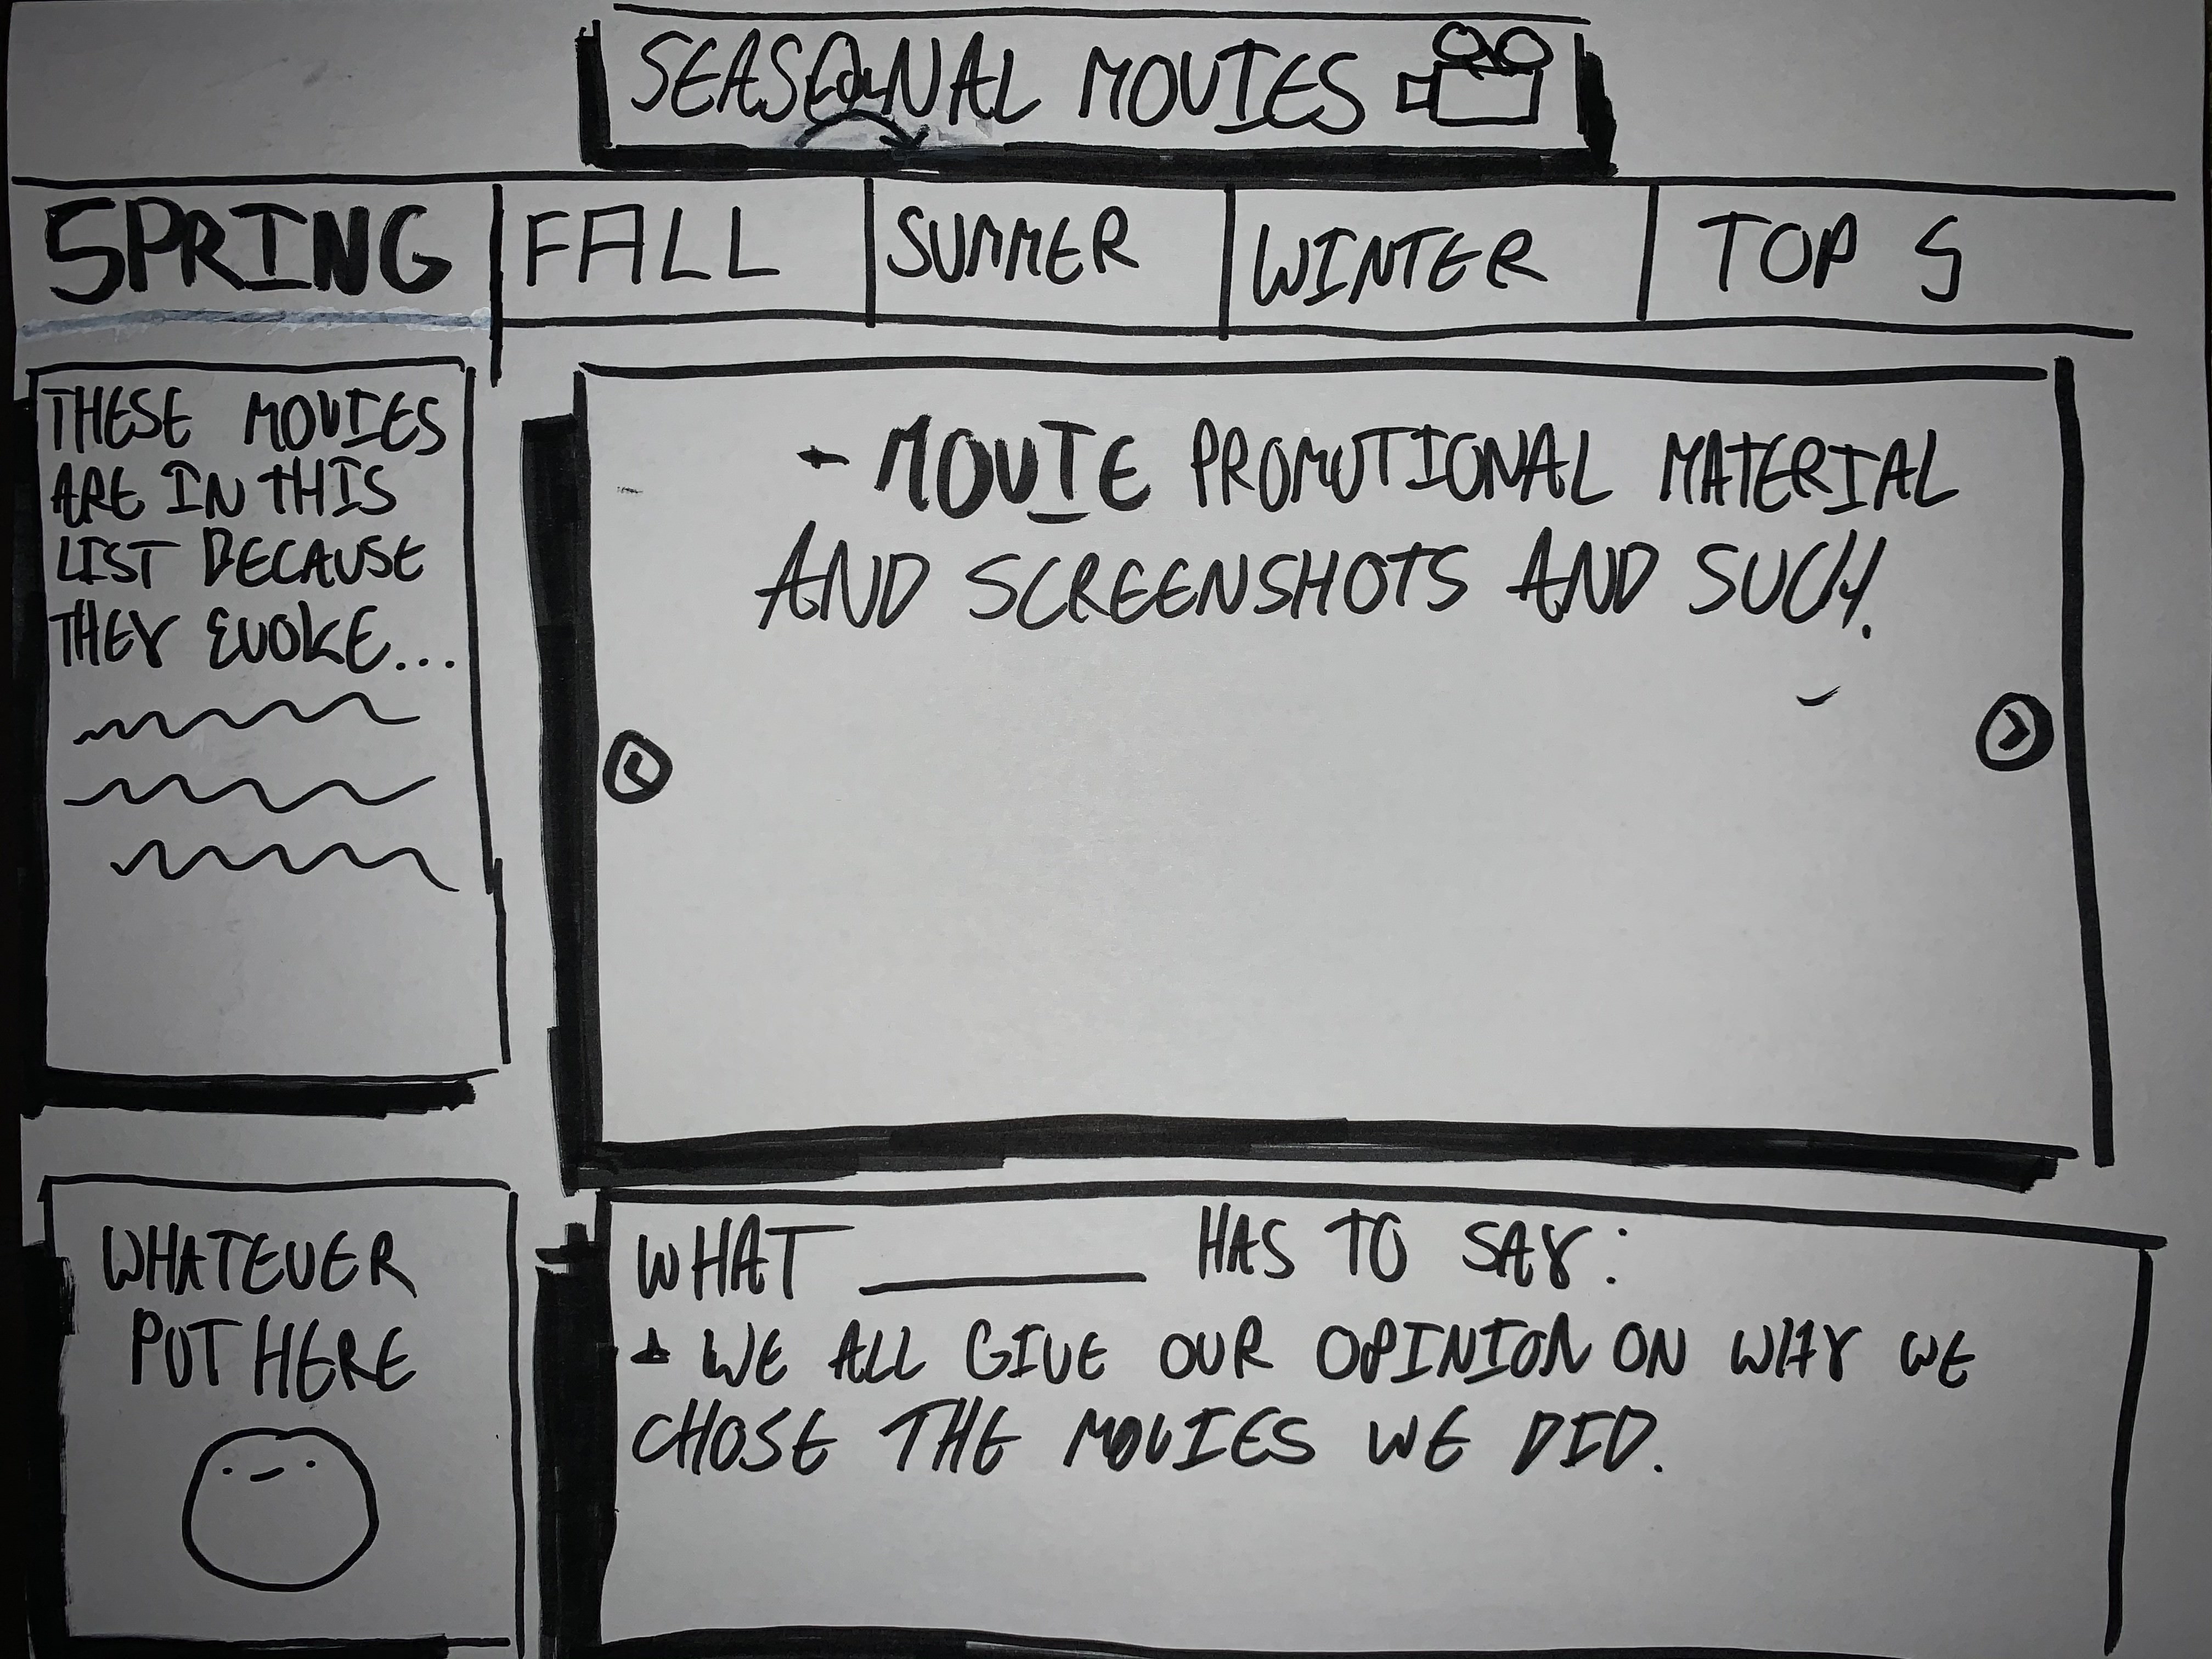 SEASONAL MOVIES
SPRING
FALL
SUMMER
WINTER
TOP 5
THESE MOVIES
ARE IN THIS
LIST BECAUSE
THEY EVOKE...
- MOVIE PROMOTIONAL MATERIAL
AND SCREENSHOTS AND SUCH.
WHATEVER
PUT HERE
WHAT ________ HAS TO SAY:
- WE ALL GIVE OUR OPINION ON WHY WE
CHOSE THE MOVIES WE DID.